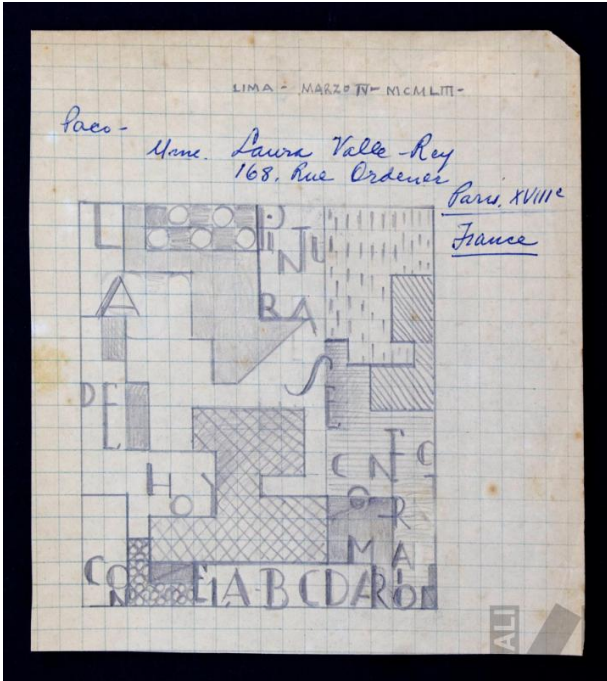 LIMA - MARZO IV - MCMLIII -
Paco -
Mme. Laura Valle-Rey
168, Rue Ordener
Paris. XVIIIe
France
LA
PINTU
RA
DE
HOY
SE
CONFORMA
CON EL A-B CDARIO
ALI